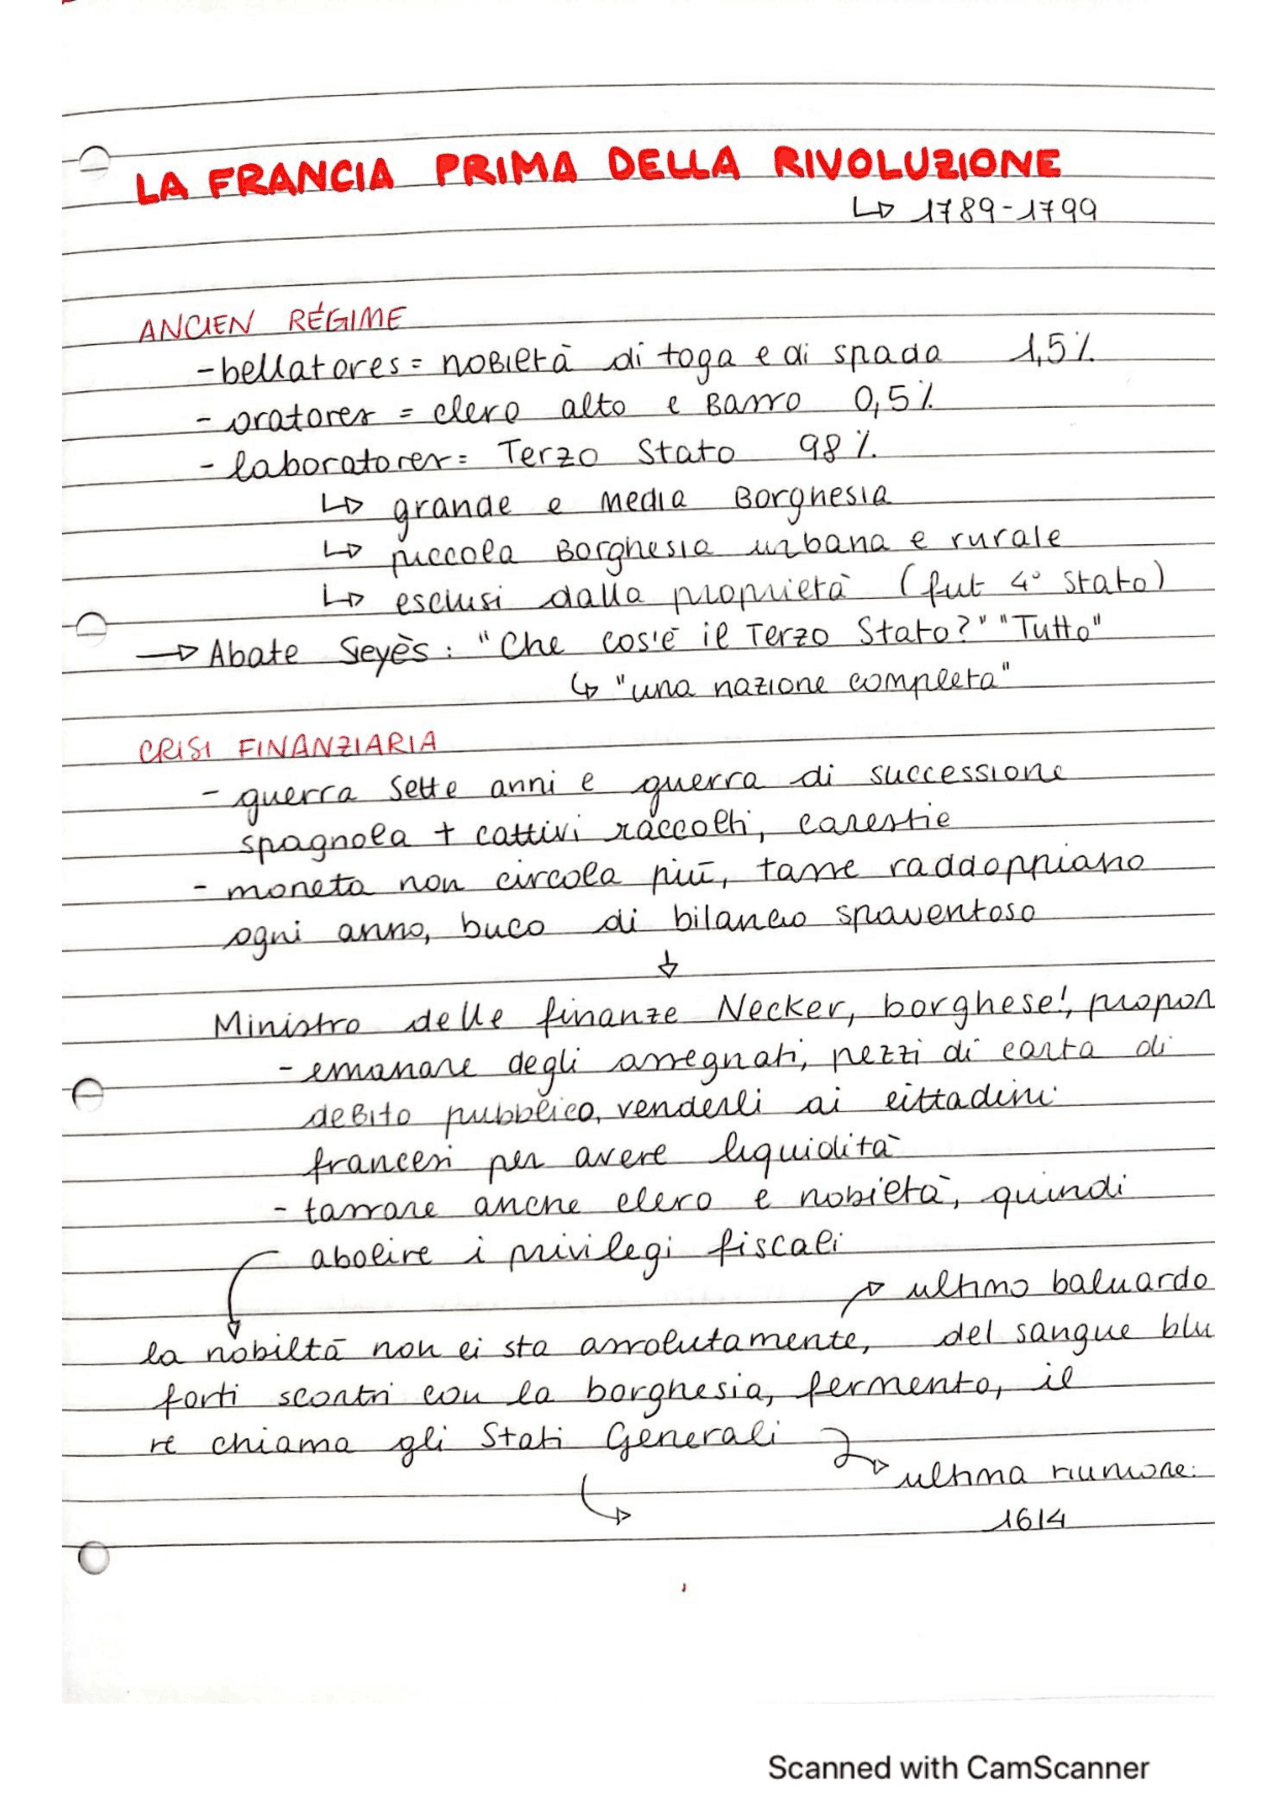 LA FRANCIA PRIMA DELLA RIVOLUZIONE
↳ 1789-1799
ANCIEN RÉGIME
- bellatores = nobiltà di toga e di spada 1,5%
- oratores = clero alto e basso 0,5%
- laboratores = Terzo Stato 98%
↳ grande e media borghesia
↳ piccola borghesia urbana e rurale
↳ esclusi dalla proprietà (fut 4° stato)
→ Abate Sieyès: "Che cos'è il Terzo Stato?" "Tutto"
↳ "una nazione completa"
CRISI FINANZIARIA
- guerra sette anni e guerra di successione
spagnola + cattivi raccolti, carestie
- moneta non circola più, tasse raddoppiano
ogni anno, buco di bilancio spaventoso
↓
Ministro delle finanze Necker, borghese!, propon
- emanare degli assegnati, pezzi di carta di
debito pubblico, venderli ai cittadini
francesi per avere liquidità
- tassare anche clero e nobiltà, quindi
abolire i privilegi fiscali
→ ultimo baluardo
la nobiltà non ci sta assolutamente, del sangue blu
forti scontri con la borghesia, fermento, il
re chiama gli Stati Generali
→ ultima riunione:
1614
Scanned with CamScanner